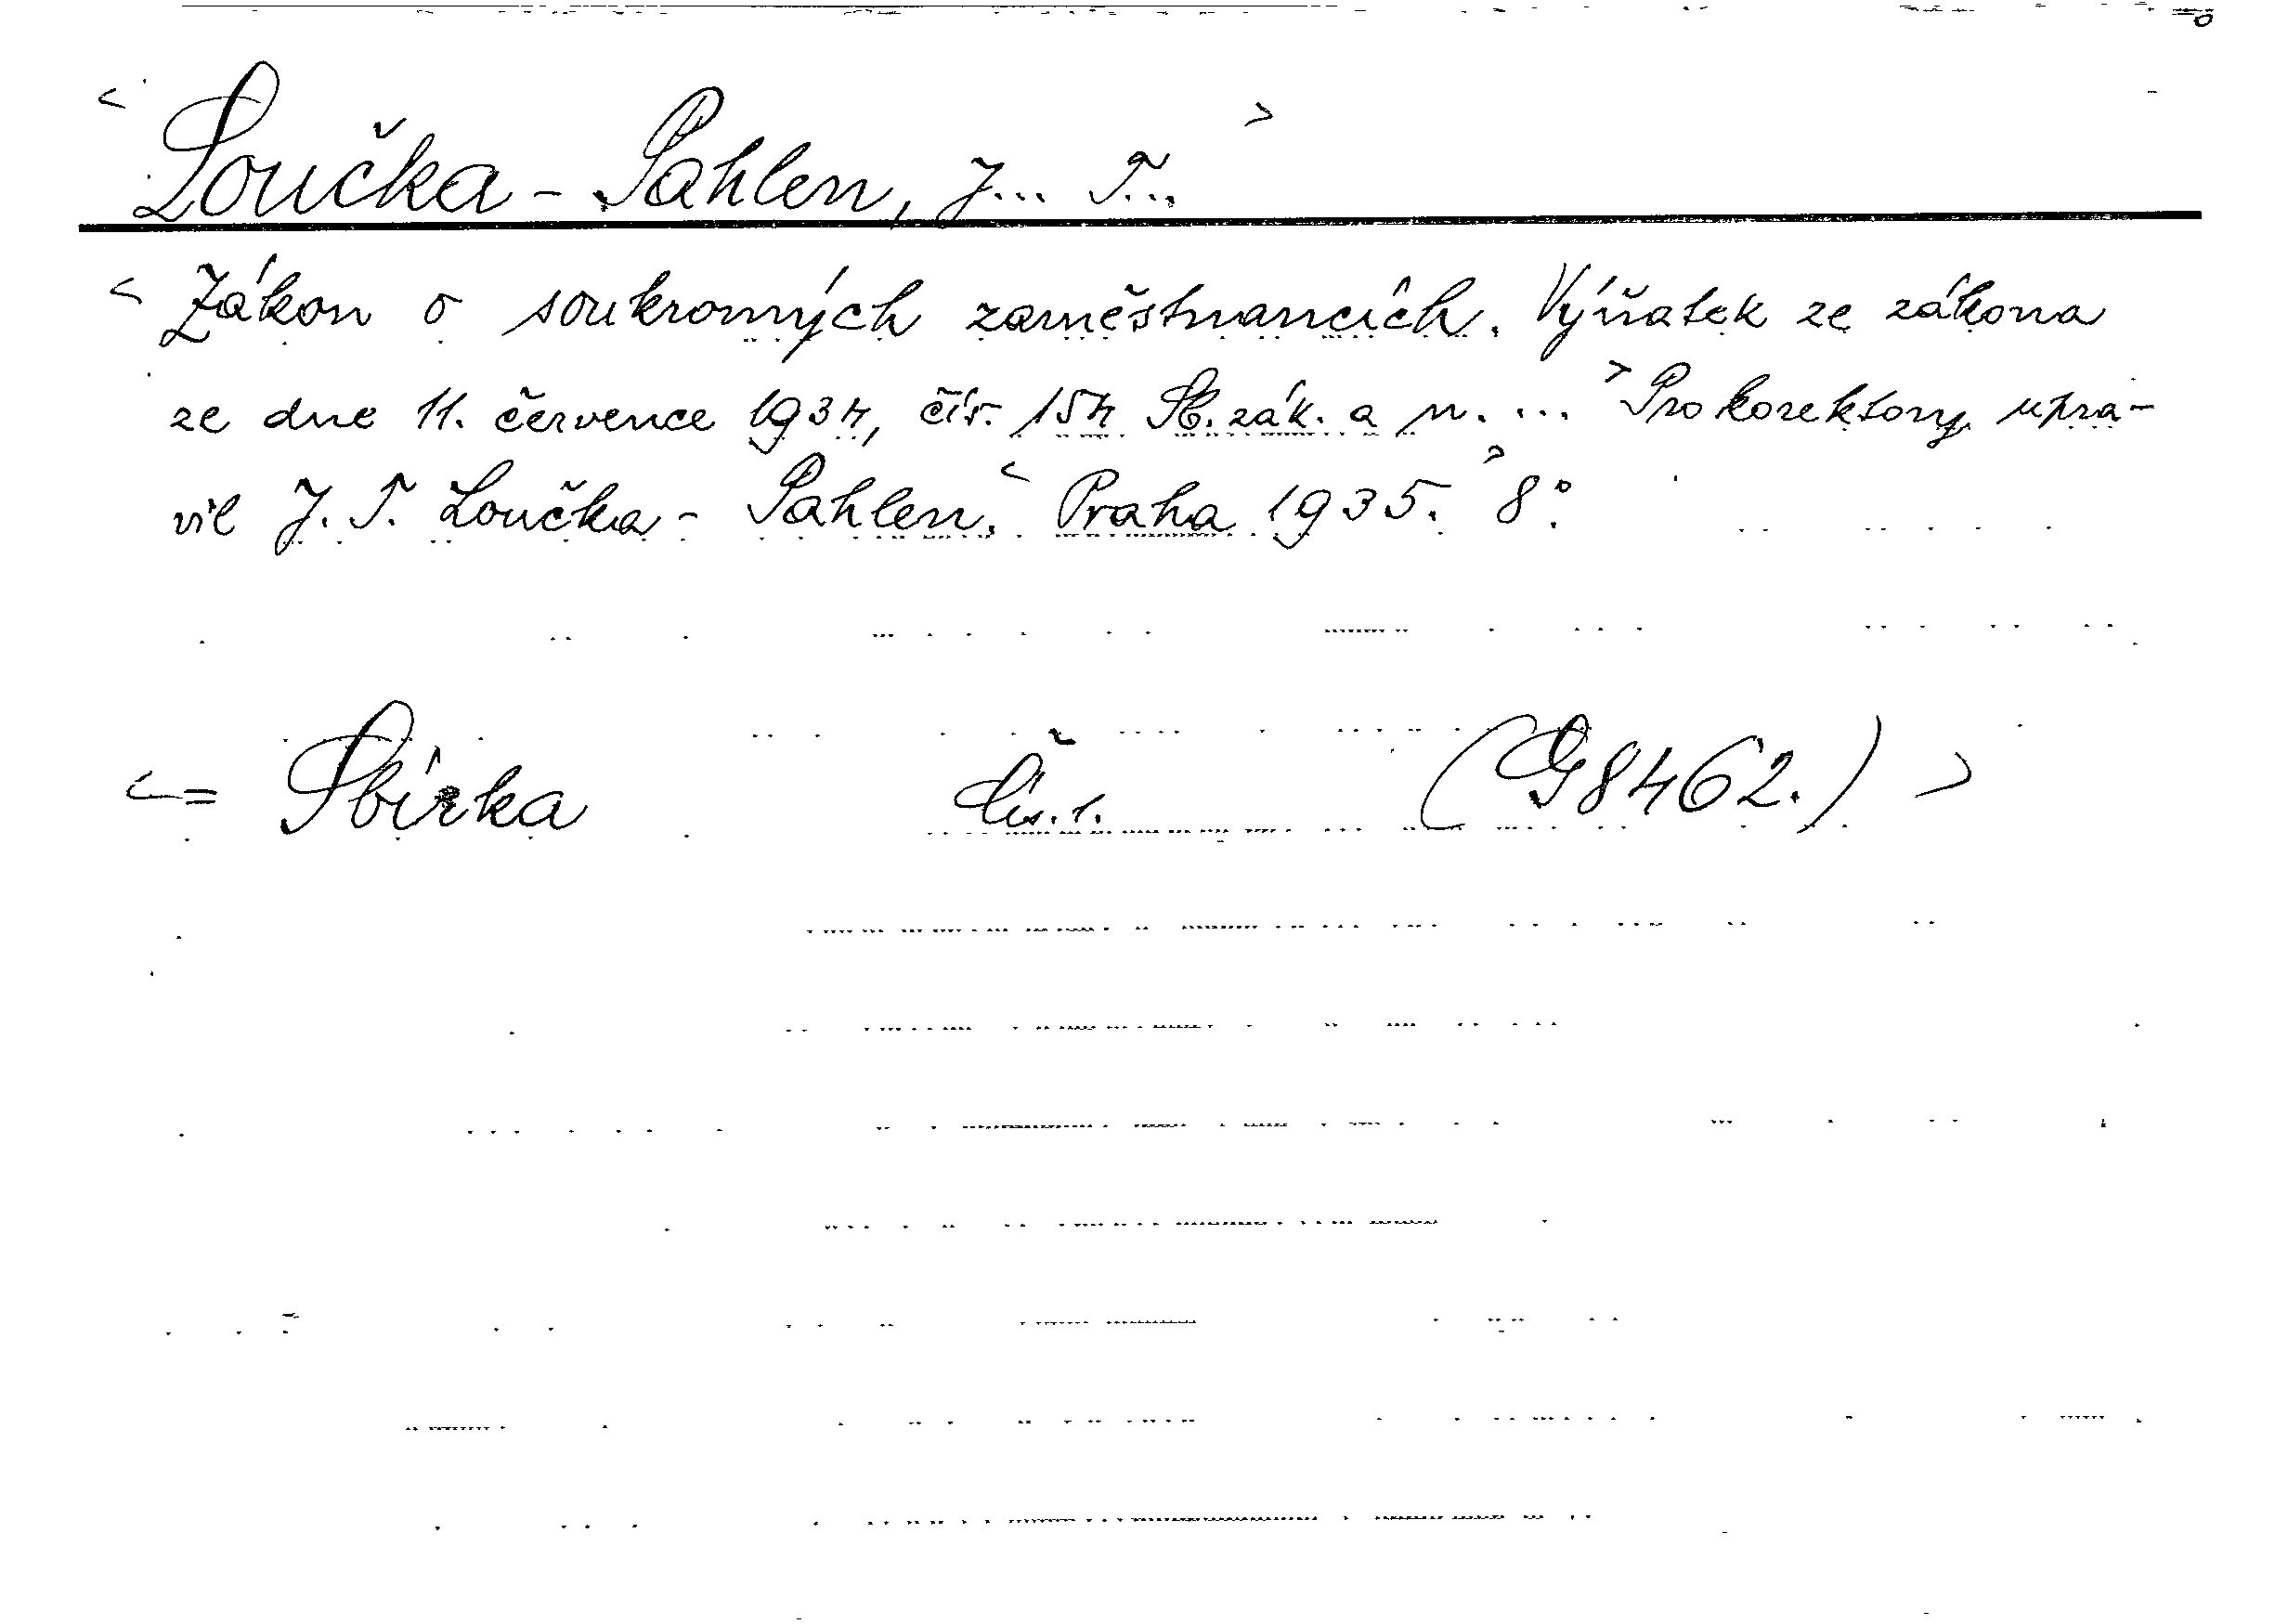 < Loučka - Sahlen, J... T... >
< Zákon o soukromých zaměstnancích. Výňatek ze zákona
ze dne 11. července 1934, čís. 154 Sb. zák. a n. ... > Pro korektory upra-
vil J. T. Loučka - Sahlen. < Praha 1935. > 8°.
< = Sbírka Čís. 1. (G 8462.) >